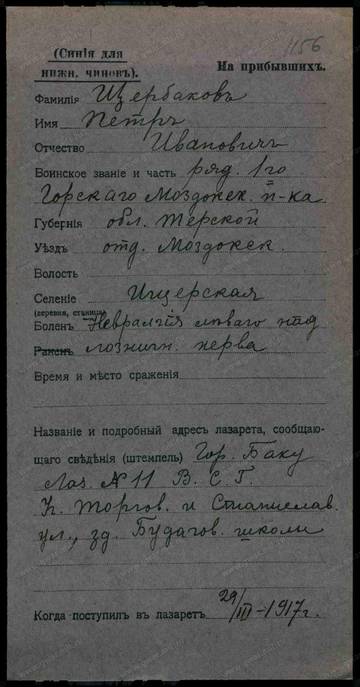 1156
(Синія для
нижн. чиновъ).
На прибывшихъ.
Фамилія Щербаковъ
Имя Петръ
Отчество Ивановичъ
Воинское званіе и часть ряд. 1го
Горскаго Моздокск. п-ка
Губернія обл. Терской
Уѣздъ отд. Моздокск.
Волость
Селеніе Ищерская
(деревня, станица)
Боленъ Невралгія лѣваго
Раненъ нерва
Время и мѣсто сраженія
Названіе и подробный адресъ лазарета, сообщаю-
щаго свѣдѣнія (штемпель) Гор. Баку
Лаз. № 11 В. С. Г.
К. Торгов. и Станислав.
ул., зд. Будагов. школы
Когда поступилъ въ лазаретъ 29/III-1917г.